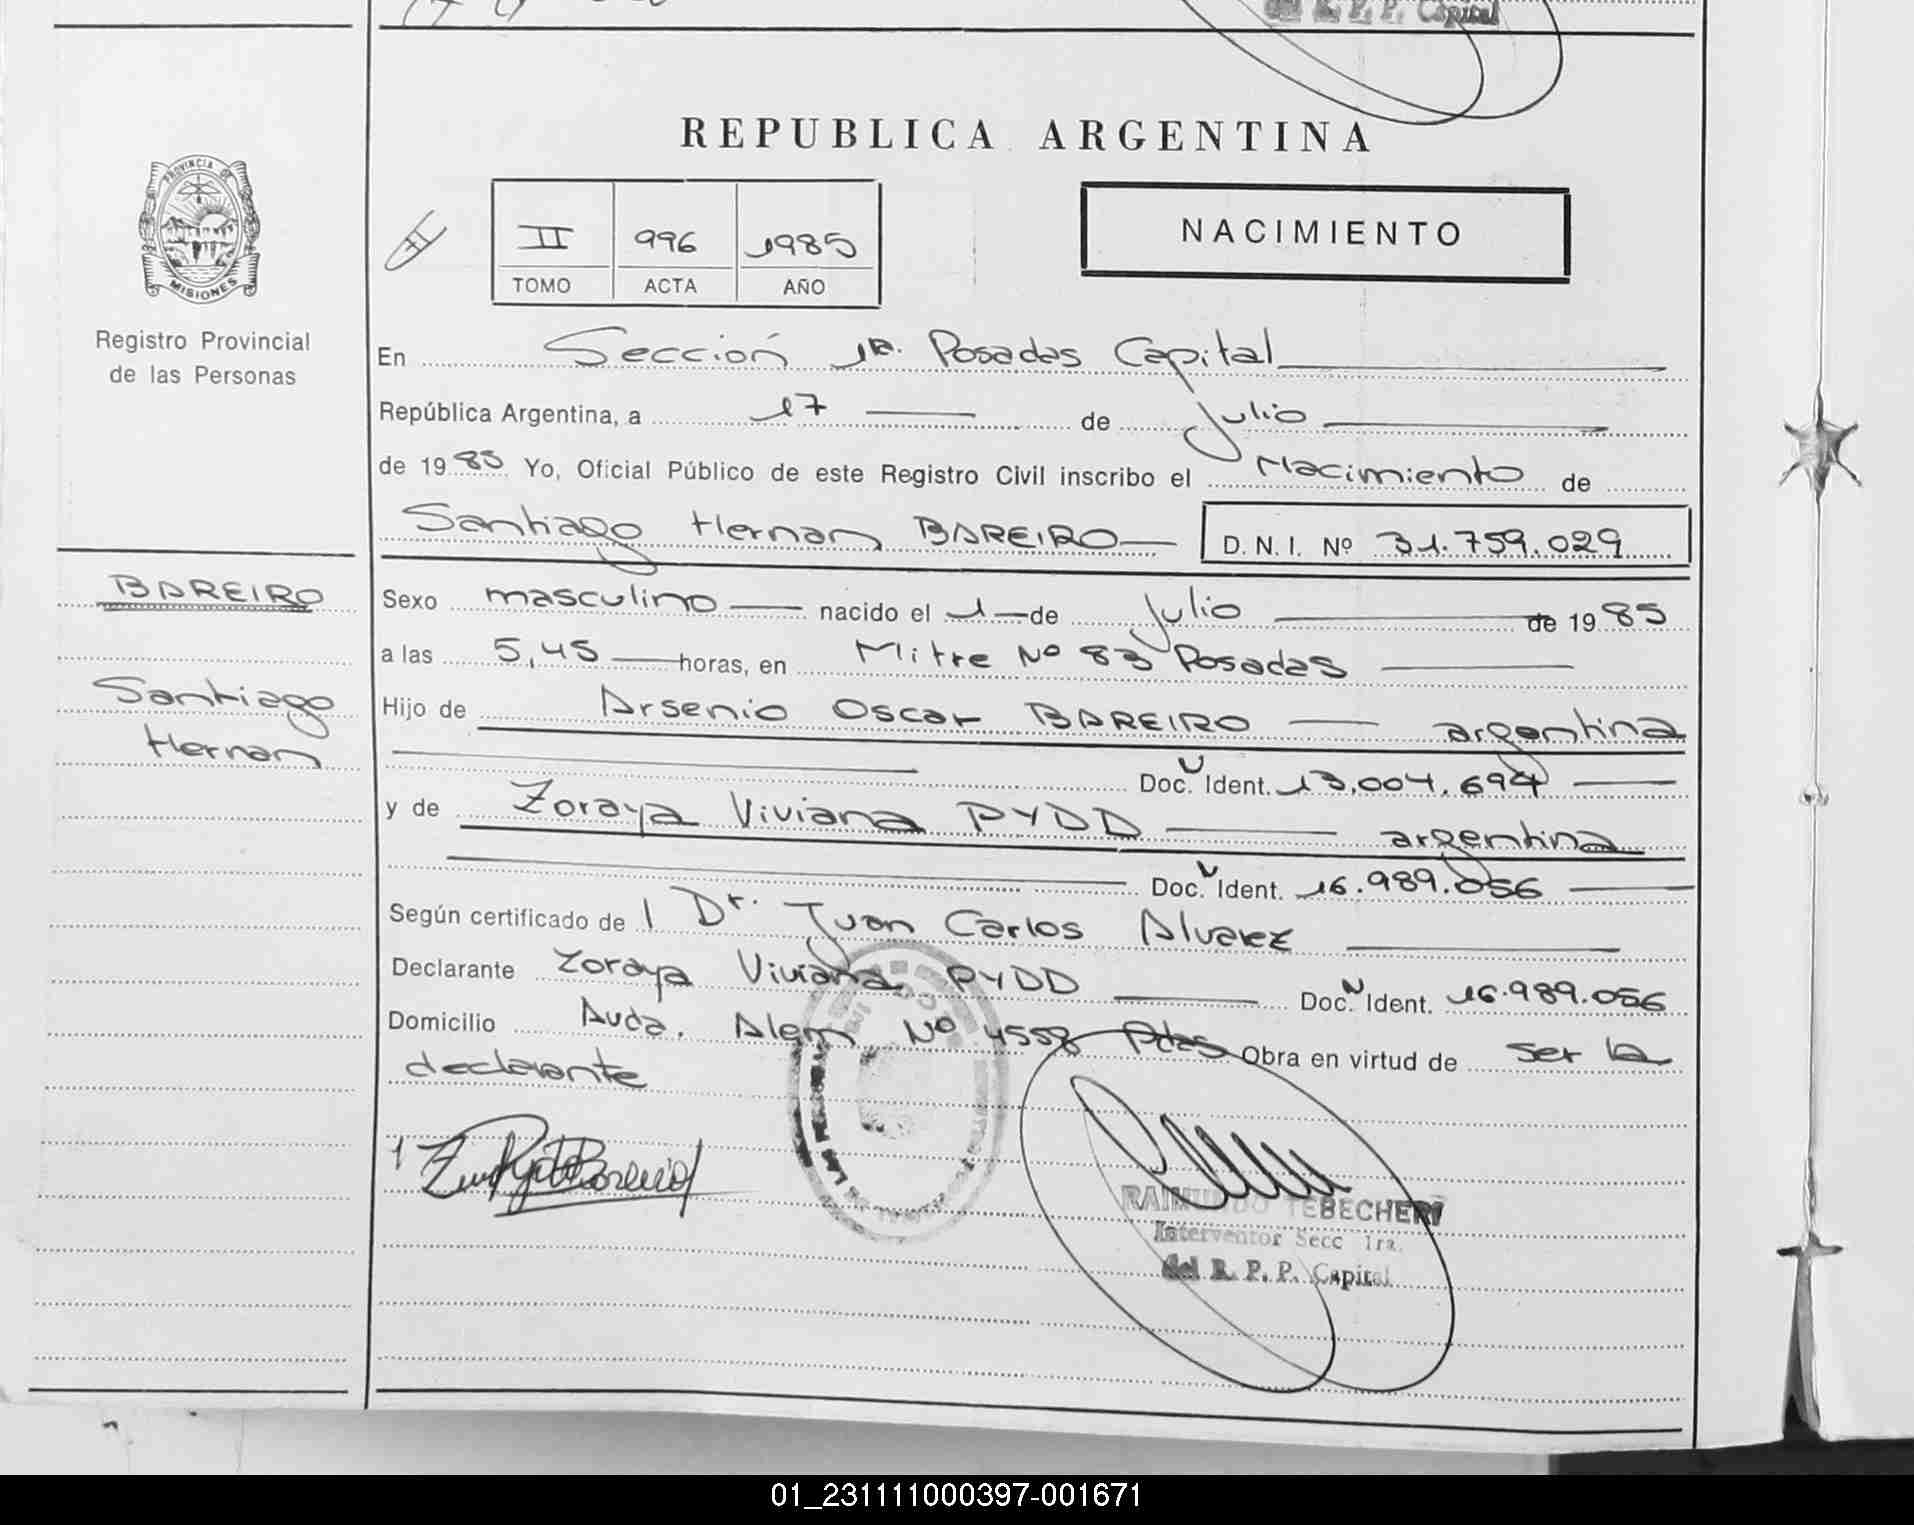 del R. P. P. Capital
REPUBLICA ARGENTINA
PROVINCIA DE
MISIONES
II 996 1985
TOMO ACTA AÑO
NACIMIENTO
Registro Provincial
de las Personas
En Sección 1a. Posadas Capital
República Argentina, a 17 de Julio
de 1985 Yo, Oficial Público de este Registro Civil inscribo el Nacimiento de
Santiago Hernan BAREIRO D.N.I. Nº 31.759.029
BAREIRO
Santiago
Hernan
Sexo masculino nacido el 1 de Julio de 1985
a las 5,45 horas, en Mitre Nº 83 Posadas
Hijo de Arsenio Oscar BAREIRO argentina
Doc. Ident. 13.004.694
y de Zoraya Viviana PYDD argentina
Doc. Ident. 16.989.056
Según certificado de Dr. Juan Carlos Alvarez
Declarante Zoraya Viviana PYDD Doc. Ident. 16.989.056
Domicilio Avda. Alem Nº 4558 Pdas Obra en virtud de ser la
declarante
RAIMUNDO TEBECHERI
Interventor Secc 1ra.
del R. P. P. Capital
01_231111000397-001671